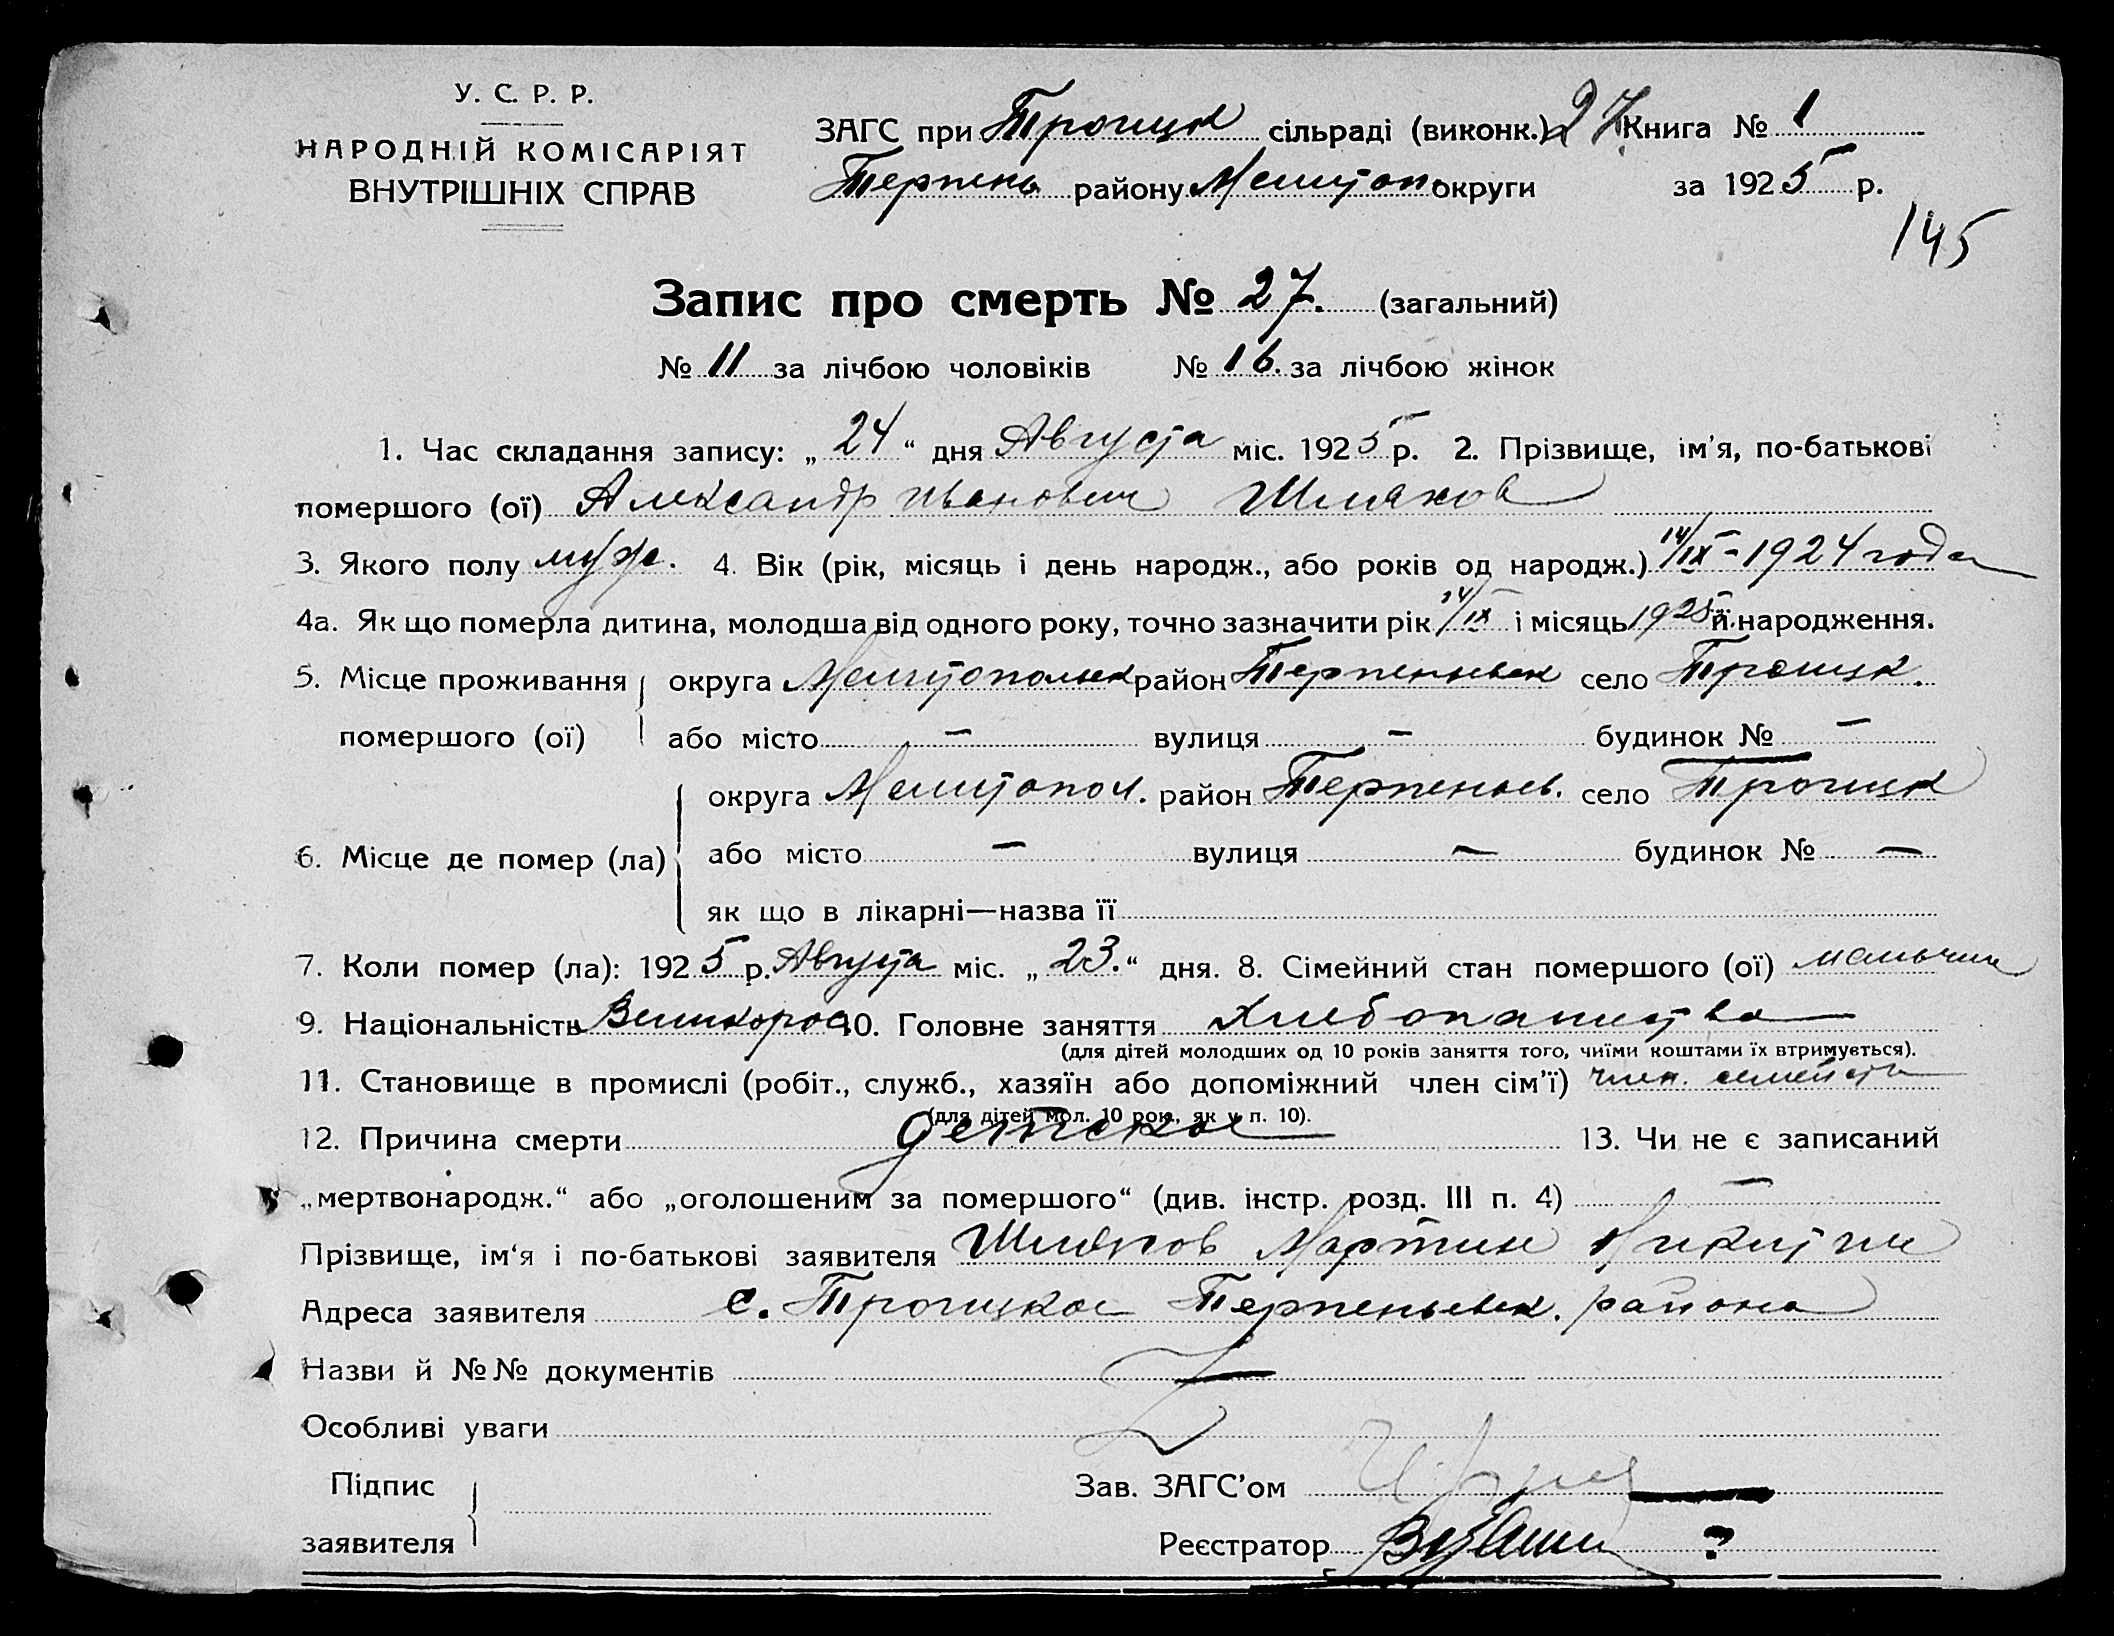 У. С. Р. Р.
НАРОДНІЙ КОМІСАРІЯТ
ВНУТРІШНІХ СПРАВ
ЗАГС при Троицк сільраді (виконк.) 27 Книга № 1
Терпень району Мелитоп округи за 1925 р.
145
Запис про смерть № 27. (загальний)
№ 11 за лічбою чоловіків № 16. за лічбою жінок
1. Час складання запису: „24“ дня Августа міс. 1925 р. 2. Прізвище, ім’я, по-батькові
помершого (ої) Александр Иванович Шляхов
3. Якого полу муж. 4. Вік (рік, місяць і день народж., або років од народж.) 14/IX-1924 года
4а. Як що померла дитина, молодша від одного року, точно зазначити рік 14/IX і місяць 1925 її народження.
5. Місце проживання округа Мелитопольск район Терпеньевск село Троицк.
помершого (ої) або місто — вулиця — будинок № —
округа Мелитопол. район Терпеньев. село Троицк
6. Місце де помер (ла) або місто — вулиця — будинок № —
як що в лікарні—назва її
7. Коли помер (ла): 1925 р. Августа міс. „23.“ дня. 8. Сімейний стан помершого (ої) мальчик
9. Національність Великорос 10. Головне заняття хлебопашества
(для дітей молодших од 10 років заняття того, чиїми коштами їх втримується).
11. Становище в промислі (робіт., служб., хазяїн або допоміжний член сім’ї) член. семейств
(для дітей мол. 10 рок., як у п. 10).
12. Причина смерти детская 13. Чи не є записаний
„мертвонародж.“ або „оголошеним за помершого“ (див. інстр. розд. III п. 4) —
Прізвище, ім‘я і по-батькові заявителя Шляхов Мартин Никитич
Адреса заявителя с. Троицкое Терпеньевск. района
Назви й №№ документів —
Особливі уваги
Підпис
заявителя
Зав. ЗАГС’ом
Реєстратор ?